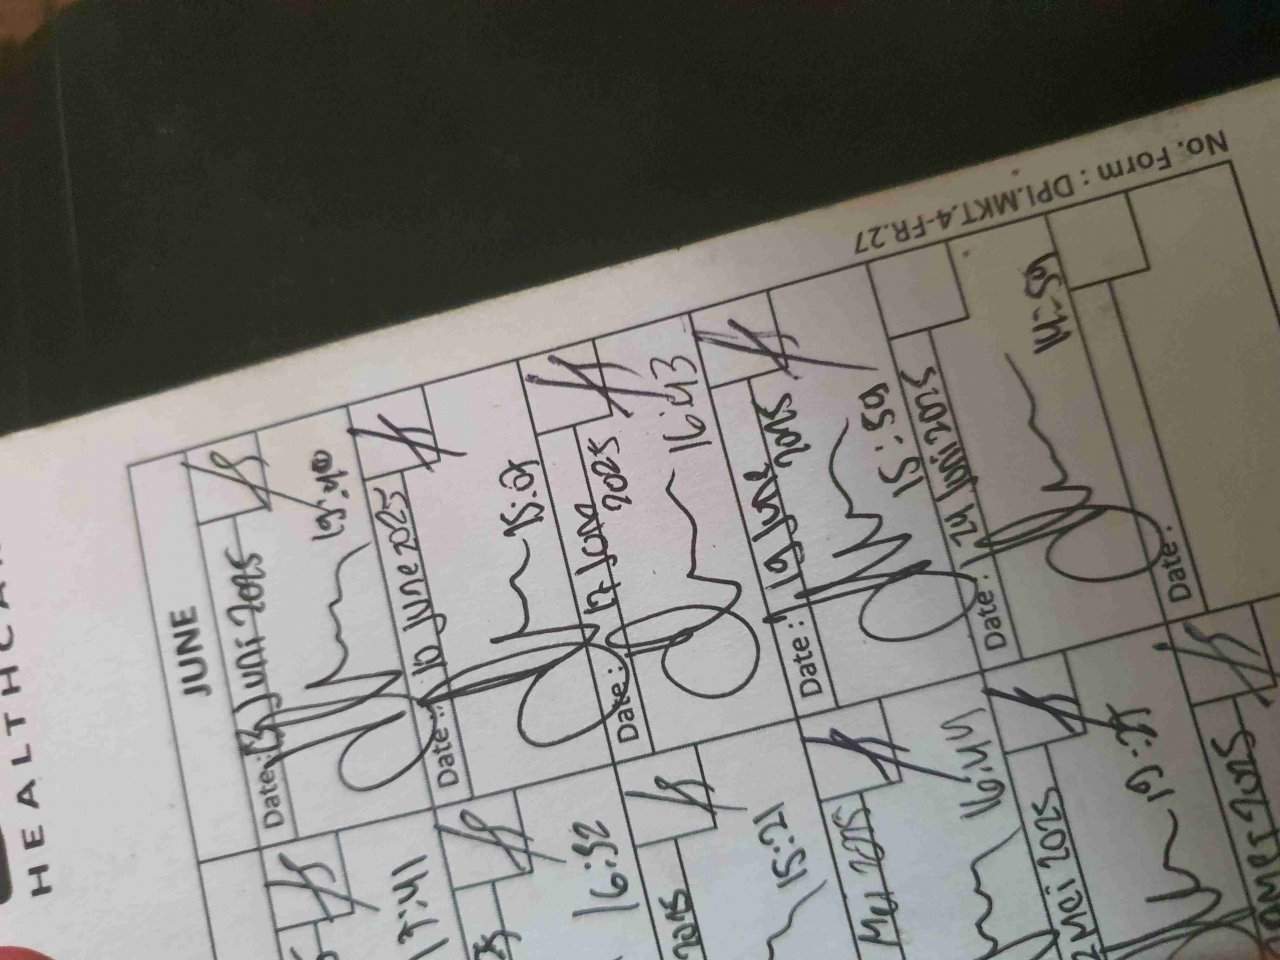 HEALTHCA
No. Form : DPI.MKT.4-FR.27
JUNE
Date: Juni 2025
19:40
Date: 10 June 2025
15:07
Date: 17 June 2025
16:43
Date: 19 June 2025
15:59
Date: 24 Juni 2025
14:59
Date:
17:41
16:32
2025
15:21
Mei 2025
16:44
2 Mei 2025
19:27
2025